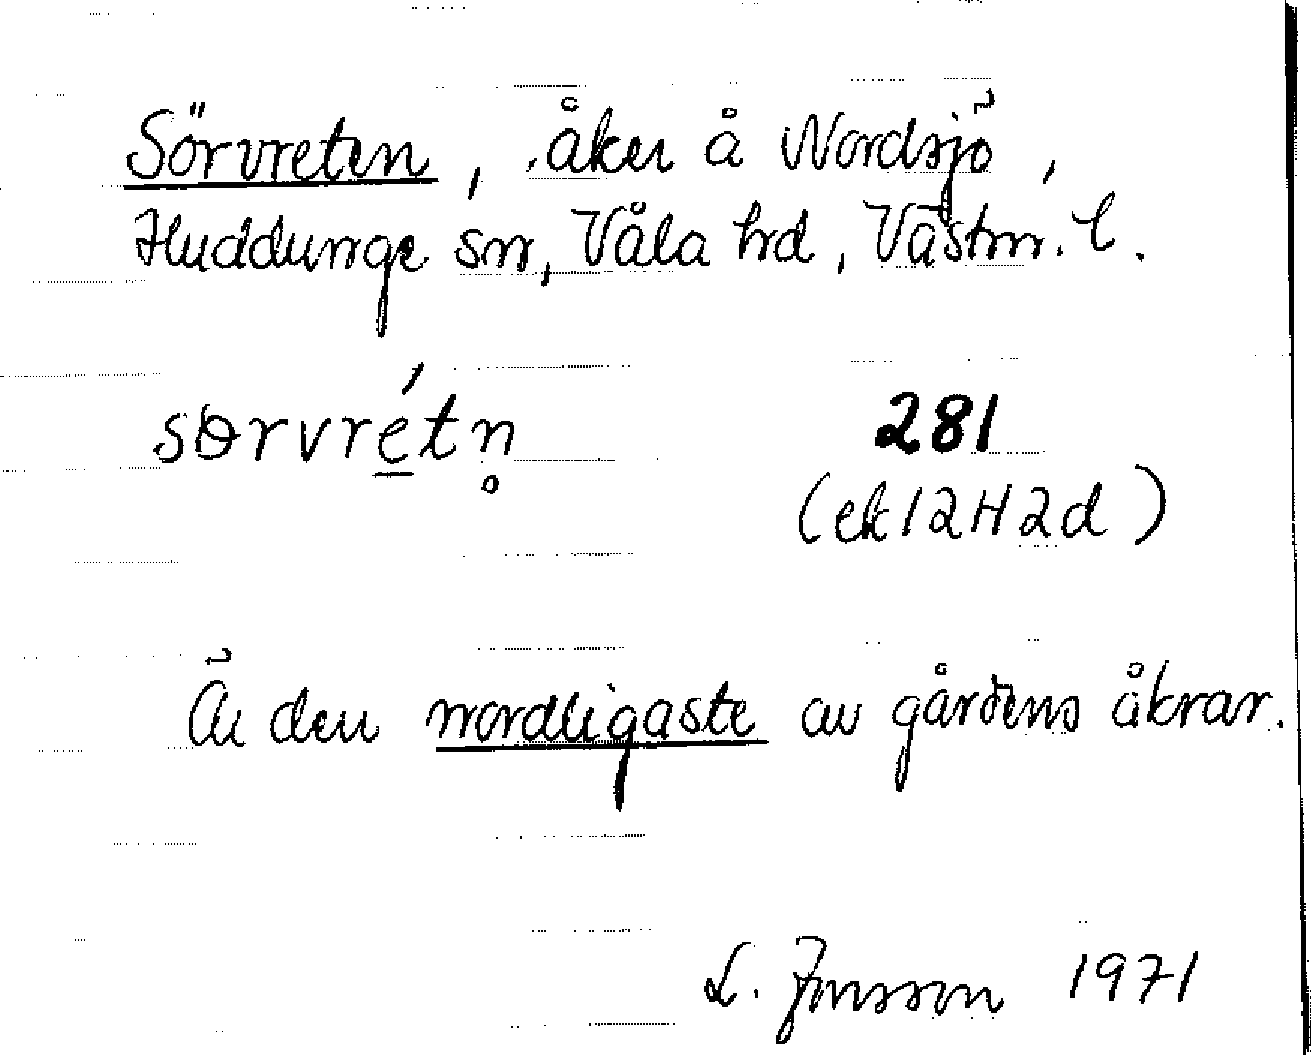 Sörvreten, åker å Nordsjö,
Huddunge sn, Våla hd, Västm. l.
sɵrvré̲tn̥ 281
(ek 12H2d)
Är den nordligaste av gårdens åkrar.
L. Jonsson 1971